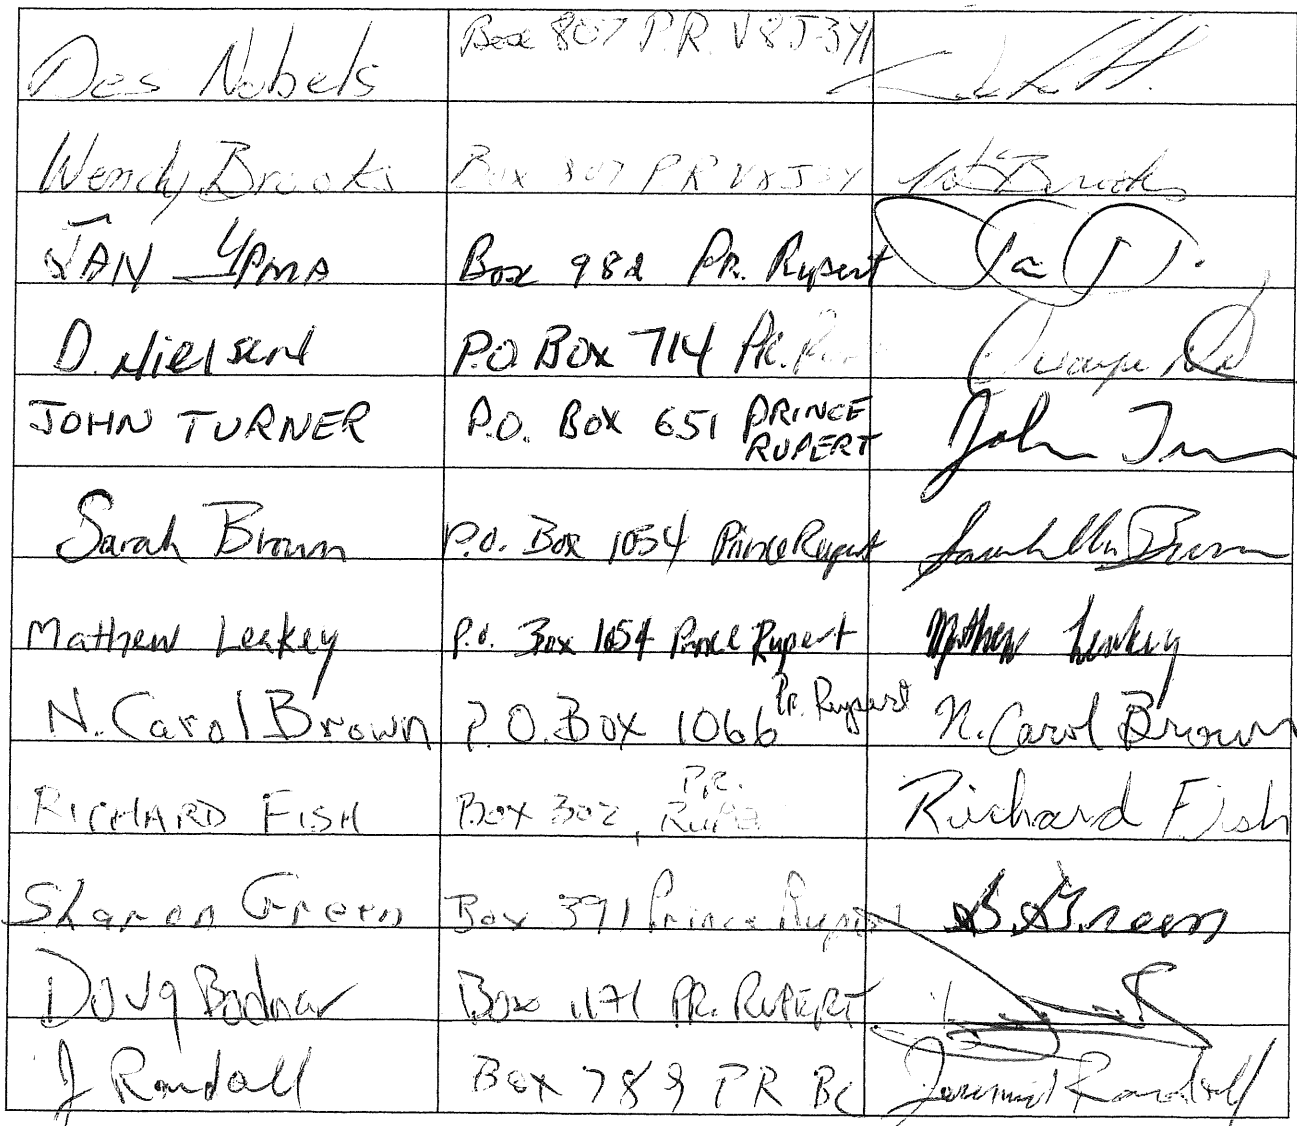 Des Nobels Box 807 P.R. V8J3Y1
Wendy Brooks Box 807 PR V8J3Y1 W Brooks
JAN YPMA Box 982 PR. Rupert Jan
D. Nielsen P.O. Box 714 PR. Dwayne
JOHN TURNER P.O. Box 651 PRINCE
RUPERT John Turn
Sarah Brown P.O. Box 1054 Prince Rupert Sarah Brown
Mathew Leakey P.O. Box 1054 Prince Rupert Mathew Leakey
N. Carol Brown P.O. Box 1066 Pr. Rupert N. Carol Brown
RICHARD FISH Box 302, P.R. Richard Fish
Sharon Green Box 391 Prince Rupert S. Green
Doug Bodnar Box 1171 PR. RUPERT
J Randall Box 789 PR BC Randall